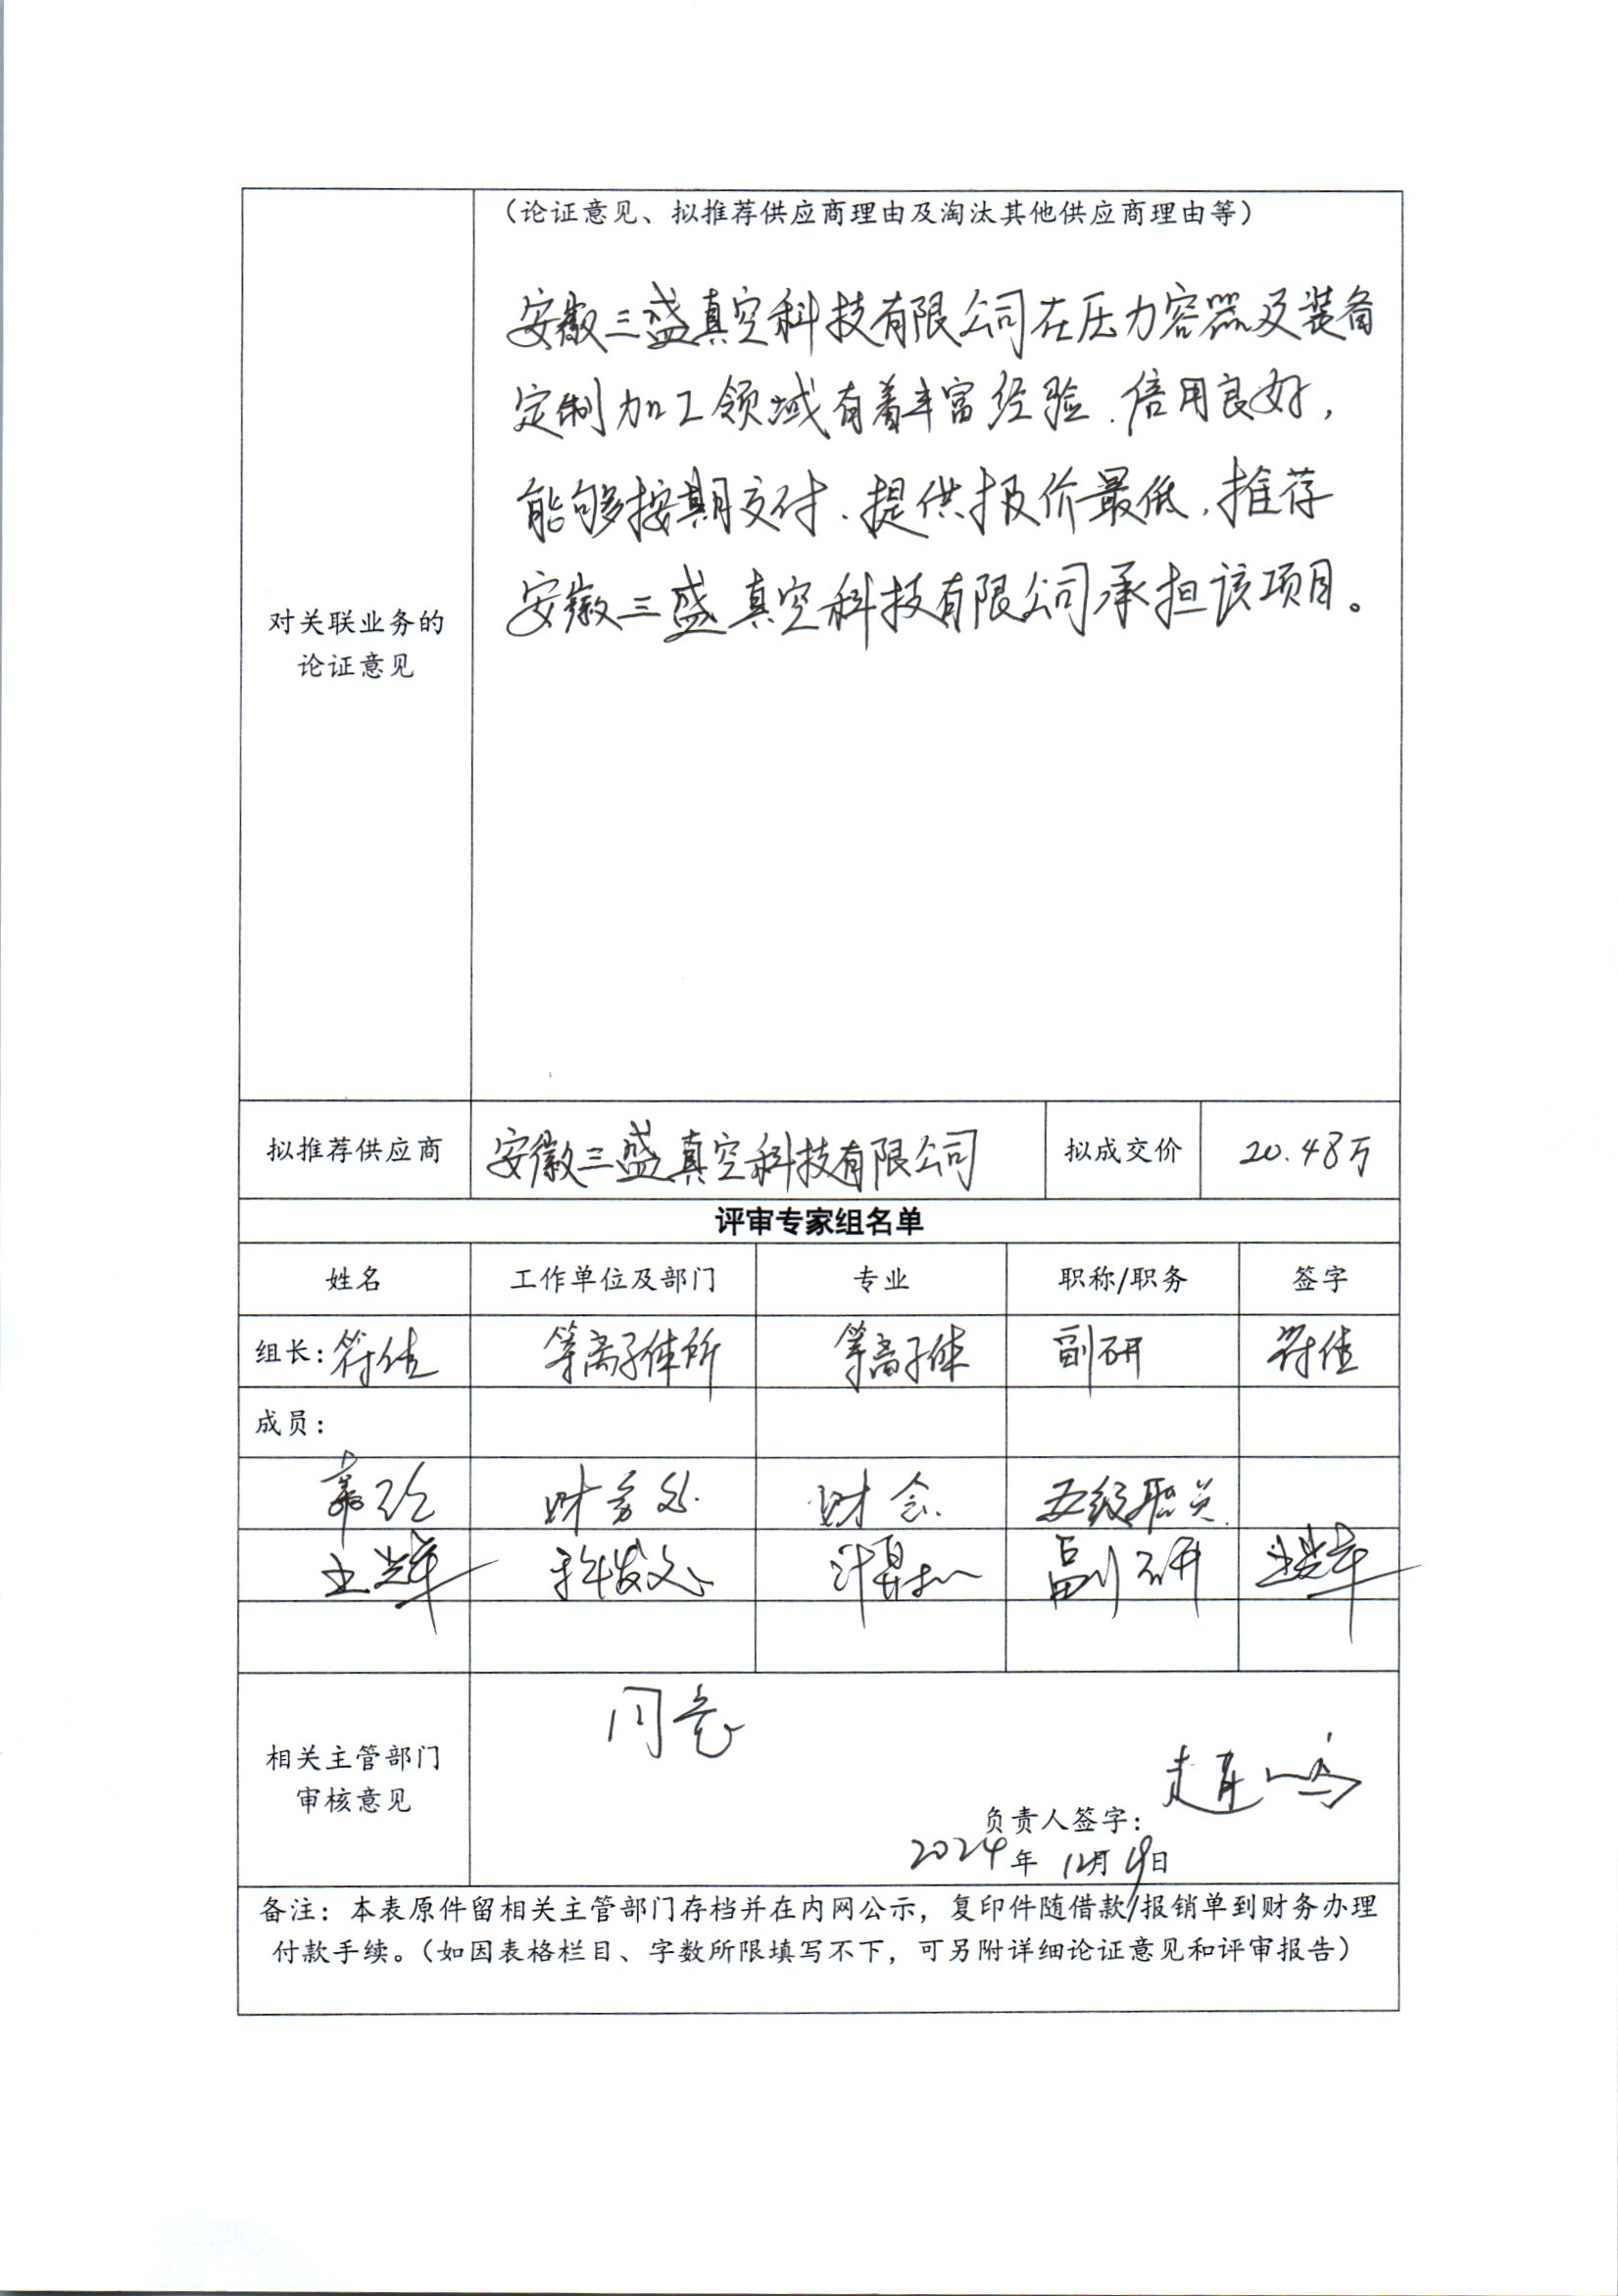 （论证意见、拟推荐供应商理由及淘汰其他供应商理由等）
安徽三盛真空科技有限公司在压力容器及装备
定制加工领域有着丰富经验、信用良好，
能够按期交付、提供报价最低，推荐
安徽三盛真空科技有限公司承担该项目。
对关联业务的
论证意见
拟推荐供应商 安徽三盛真空科技有限公司 拟成交价 20.48万
评审专家组名单
姓名 工作单位及部门 专业 职称/职务 签字
组长：符佳 等离子体所 等离子体 副研 符佳
成员：
财务处 财会 五级职员
科发处 计算机 副研
同意
相关主管部门
审核意见
负责人签字：
2024年 12月 19日
备注：本表原件留相关主管部门存档并在内网公示，复印件随借款/报销单到财务办理
付款手续。（如因表格栏目、字数所限填写不下，可另附详细论证意见和评审报告）